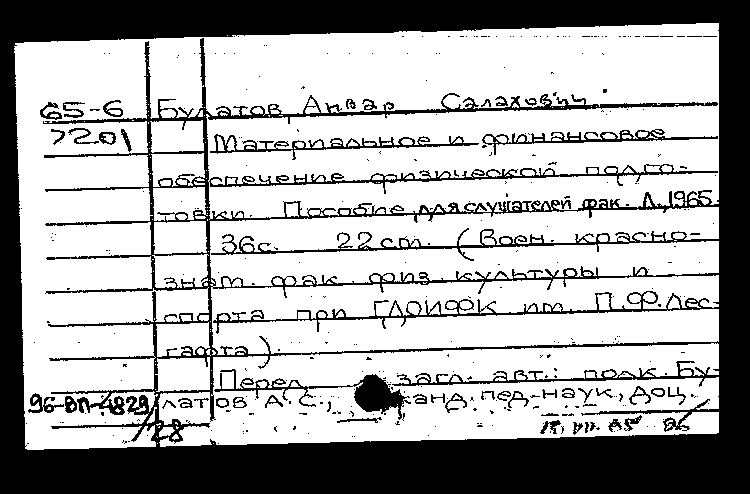 65-6 Булатов, Анвар Салахович.
7201 Материальное и финансовое
обеспечение физической подго=
товки. Пособие для слушателей фак. Л., 1965.
36с. 22 cm. (Воен. красно=
знам. фак. физ. культуры и
спорта при ГДОИФК им. П.Ф.Лес=
гафта).
Перед загл. авт.: полк. Бу-
96-ВП-4829 латов А.С., канд. пед. наук, доц.
/28